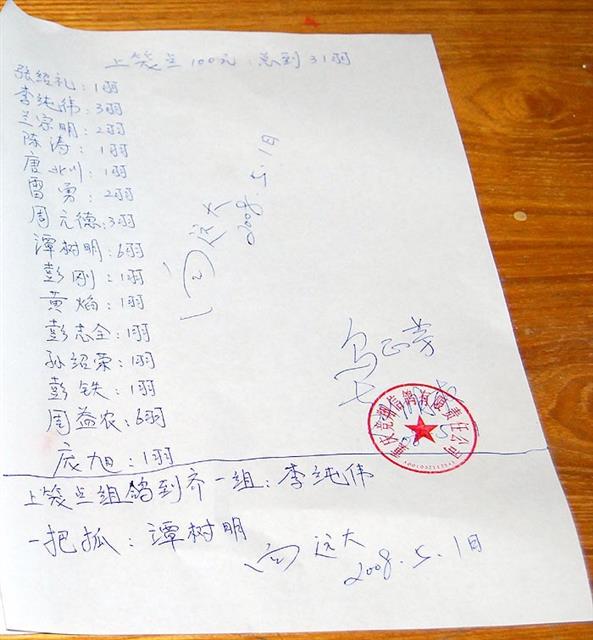 上笼点100元:总到31羽
张绍礼:1羽
李纯伟:3羽
兰宗明:2羽
陈涛:1羽
唐北川:1羽
雷勇:2羽
周元德:3羽
谭树明:6羽
彭刚:1羽
黄焰:1羽
彭志全:1羽
孙绍荣:1羽
彭铁:1羽
周益农:6羽
庞旭:1羽
远大
2008.5.1日
信鸽有限责任公司
上笼点组鸽到齐一组:李纯伟
一把抓:谭树明
远大
2008.5.1日